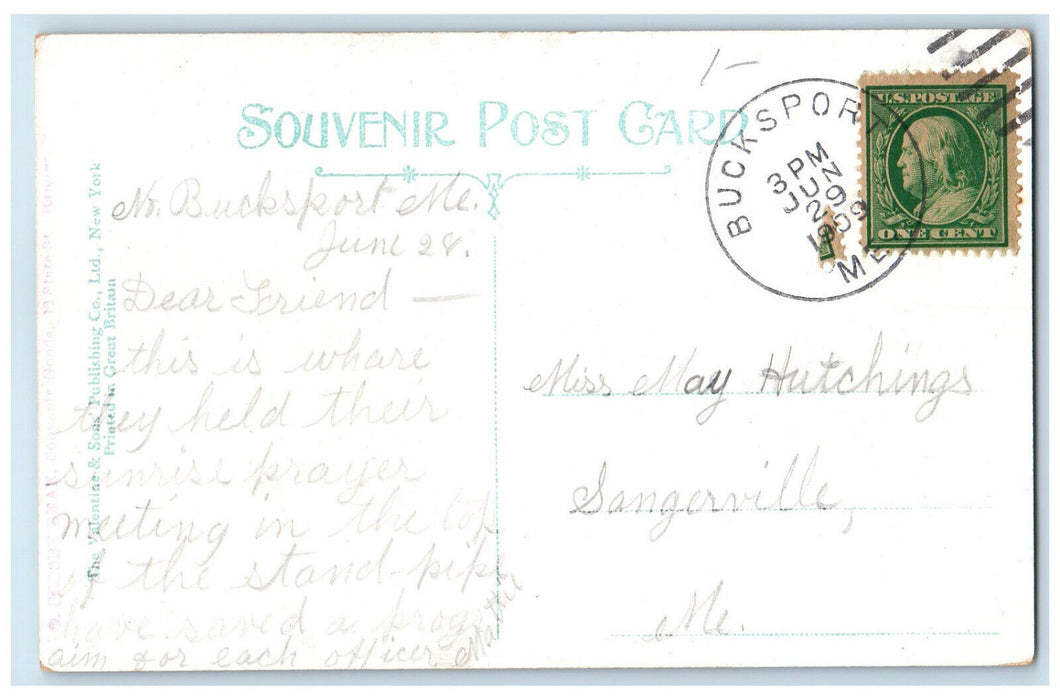 1-
SOUVENIR POST CARD
BUCKSPORT
3 PM
JUN
29
1909
ME
U.S. POSTAGE
ONE CENT
The Valentine & Sons' Publishing Co., Ltd., New York
Printed in Great Britain
No. Bucksport Me.
June 28.
Dear Friend —
this is whare
they held their
sunrise prayer
meeting in the top
of the stand-pipe
have saved a progr
aim for each officer
Mattie
Miss May Hutchings
Sangerville,
Me.